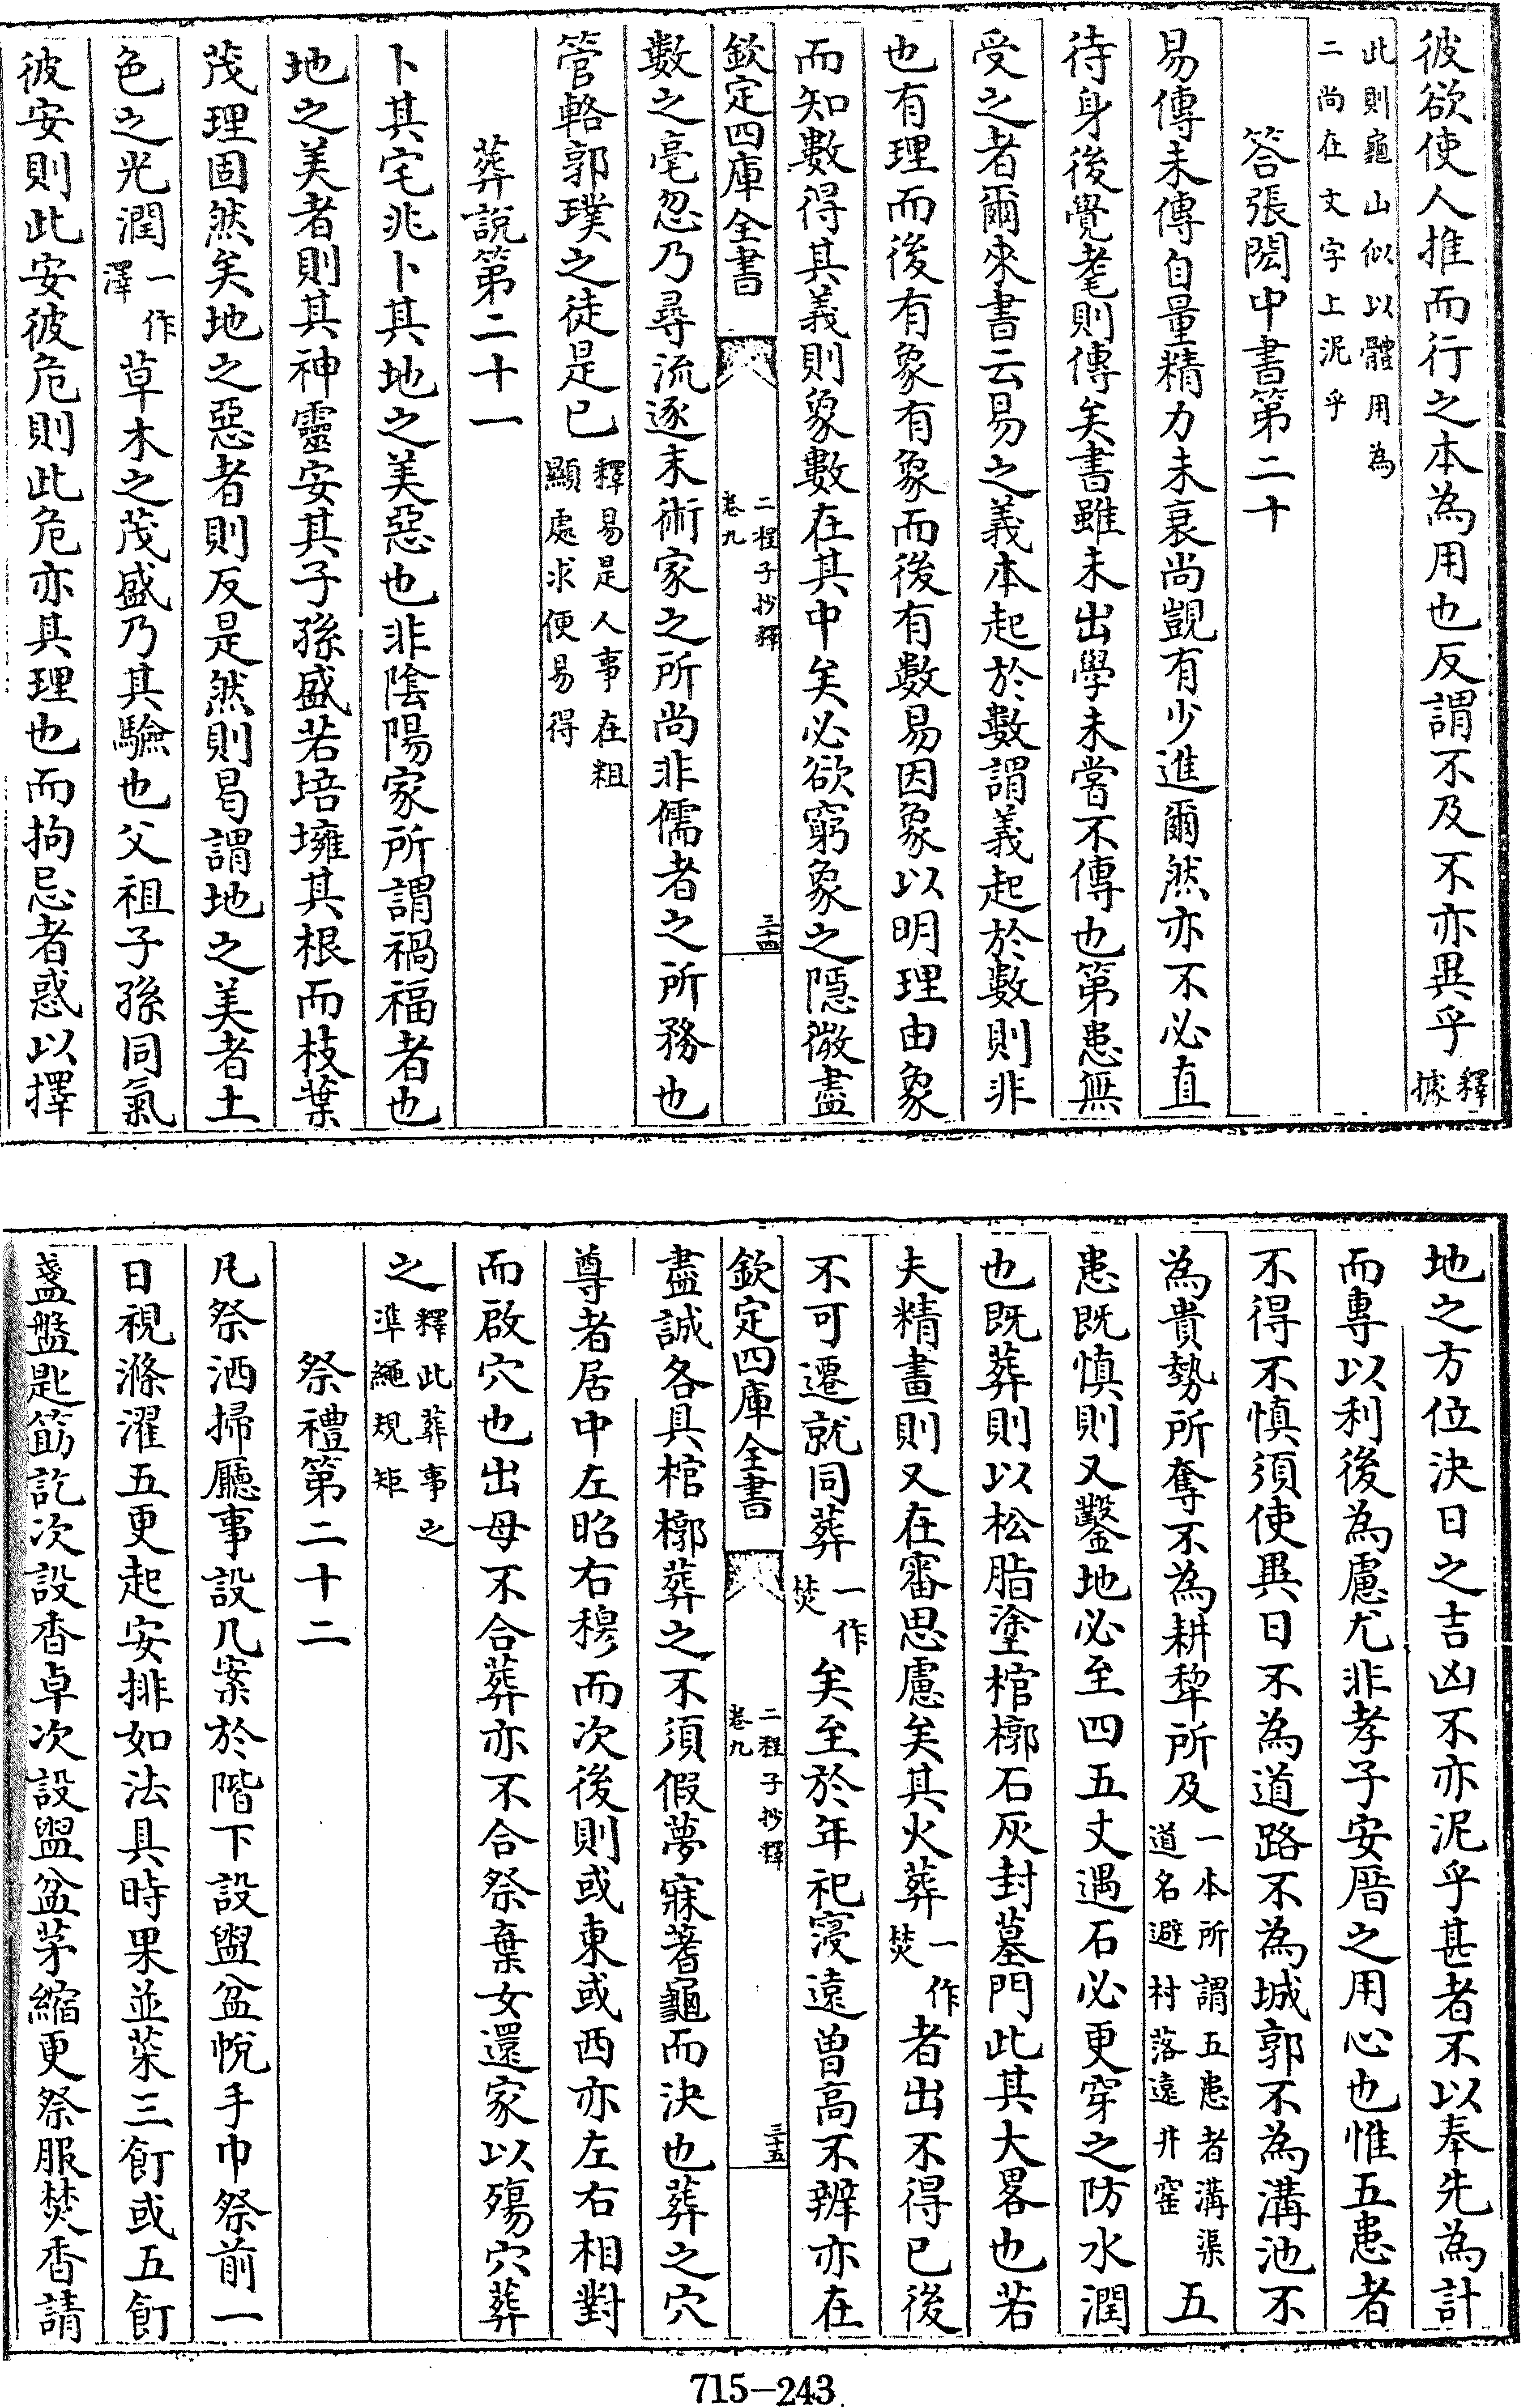 彼欲使人推而行之本為用也反謂不及不亦異乎釋據
此則龜山似以體用為二尚在文字上泥乎
答張閎中書第二十
易傳未傳自量精力未衰尚覬有少進爾然亦不必直
待身後覺耄則傳矣書雖未出學未嘗不傳也第患無
受之者爾來書云易之義本起於數謂義起於數則非
也有理而後有象有象而後有數易因象以明理由象
而知數得其義則象數在其中矣必欲窮象之隱微盡
欽定四庫全書 二程子抄釋 卷九 三十四
數之毫忽乃尋流逐末術家之所尚非儒者之所務也
管輅郭璞之徒是已釋易是人事在粗顯處求便易得
葬說第二十一
卜其宅兆卜其地之美惡也非陰陽家所謂禍福者也
地之美者則其神靈安其子孫盛若培壅其根而枝葉
茂理固然矣地之惡者則反是然則曷謂地之美者土
色之光潤一作澤草木之茂盛乃其驗也父祖子孫同氣
彼安則此安彼危則此危亦其理也而拘忌者惑以擇
地之方位決日之吉凶不亦泥乎甚者不以奉先為計
而專以利後為慮尤非孝子安厝之用心也惟五患者
不得不慎須使異日不為道路不為城郭不為溝池不
為貴勢所奪不為耕犂所及一本所謂五患者溝渠道名避村落遠井窰五
患既慎則又鑿地必至四五丈遇石必更穿之防水潤
也既葬則以松脂塗棺槨石灰封墓門此其大畧也若
夫精畫則又在審思慮矣其火葬一作焚者出不得已後
不可遷就同葬一作焚矣至於年祀寖遠曾高不辨亦在
欽定四庫全書 二程子抄釋 卷九 三十五
盡誠各具棺槨葬之不須假夢寐蓍龜而決也葬之穴
尊者居中左昭右穆而次後則或東或西亦左右相對
而啟穴也出母不合葬亦不合祭棄女還家以殤穴葬
之釋此葬事之準繩規矩
祭禮第二十二
凡祭洒掃廳事設几案於階下設盥盆帨手巾祭前一
日視滌濯五更起安排如法具時果並菜三飣或五飣
盞盤匙筯訖次設香卓次設盥盆茅縮更祭服焚香請
715-243